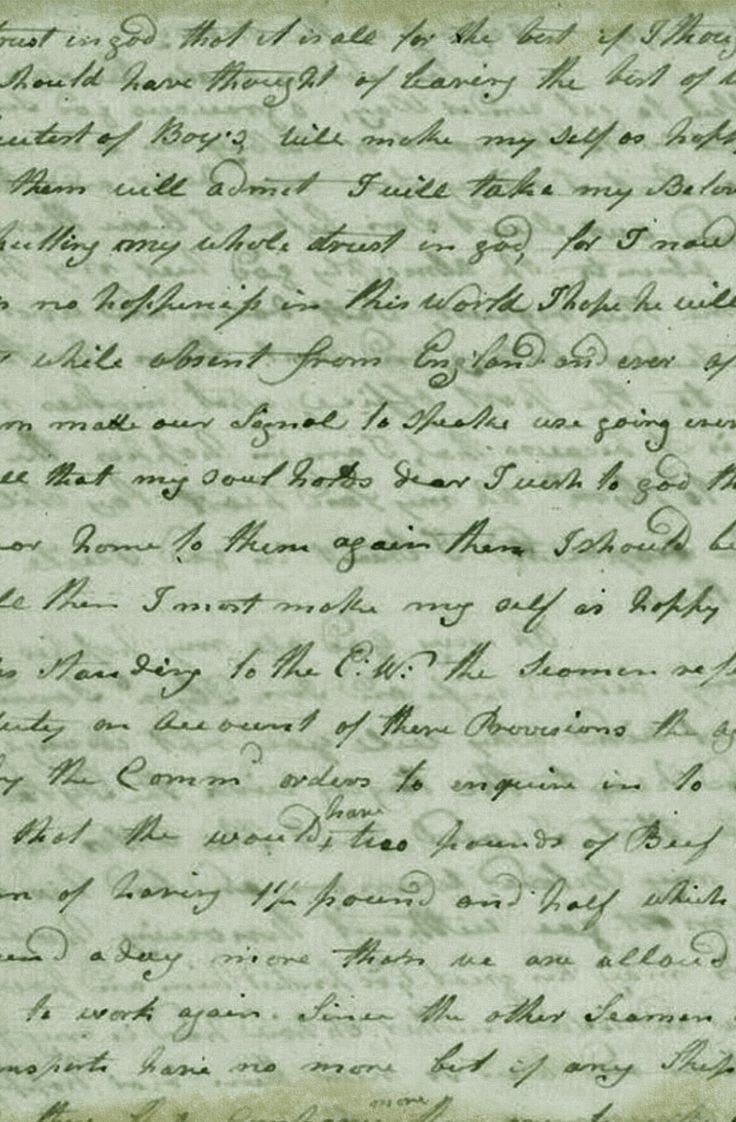 trust in god that it is all for the best if I thoug
should have thought of leaving the best of w
sweetest of Boy's, will make my self as happ
them will admit I will take my Belov
putting my whole trust in god, for I now
no happiness in this World I hope he will
while absent from England and ever af
made our Signal to speake use going over
all that my soul holds dear I wish to god th
home to them again then I should be
then I most make my self as happy
standing to the C: W: the Seamen ref
duty on Account of there Provisions the ag
by the Comm^d orders to enquire in to
that the would have two pounds of Beef
of having 1½ pound and half which
a day more than we are allowd
to work again. Since the other Seamen
ansports have no more but if any Ship
more